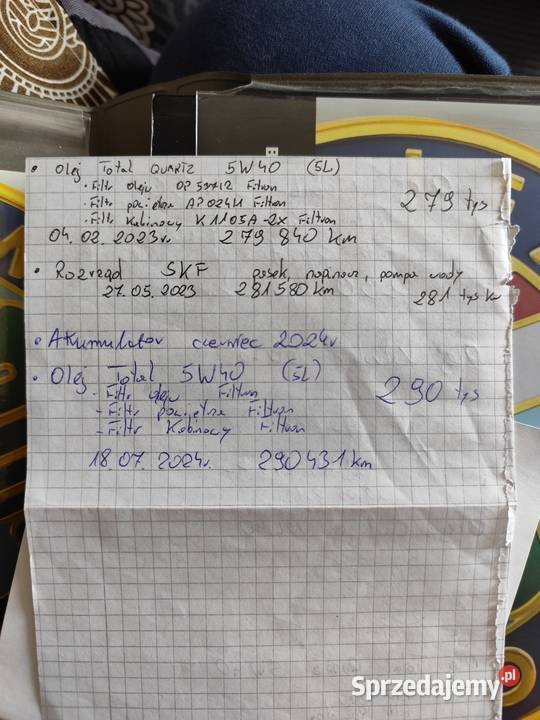 • Olej Total QUARTZ 5W40 (5L)
• Filtr oleju Filtron
• Filtr powietrza AP024/1 Filtron 279 tys
• Filtr Kabinowy K1103A-2x Filtron
04.02.2023r. 279 840 km
• Rozrząd SKF pasek, napinacz, pompa wody
27.05.2023 281580 km 281 tys km
• Akumulator czerwiec 2024r
• Olej Total 5W40 (5L)
- Filtr oleju Filtron 290 tys
- Filtr powietrza Filtron
- Filtr Kabinowy Filtron
18.07.2024r. 290431 km
Sprzedajemy.pl